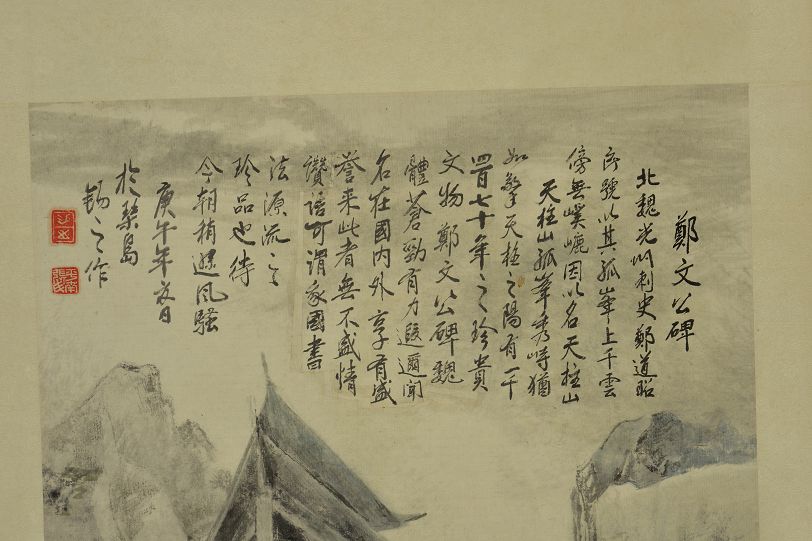 鄭文公碑
北魏光州刺史鄭道昭
序號以其孤峯上千雲
傍無巘因以名天柱山
天柱山孤峯秀峙猶
如擎天柱之陽有一千
四百七十年之珍貴
文物鄭文公碑魏
體蒼勁有力遐邇聞
名在國內外享有盛
譽來此者無不盛情
讚語可謂我國書
法源流之
珍品也待
今朝稍遜風騷
庚午年夏日
於琴島
錫之作